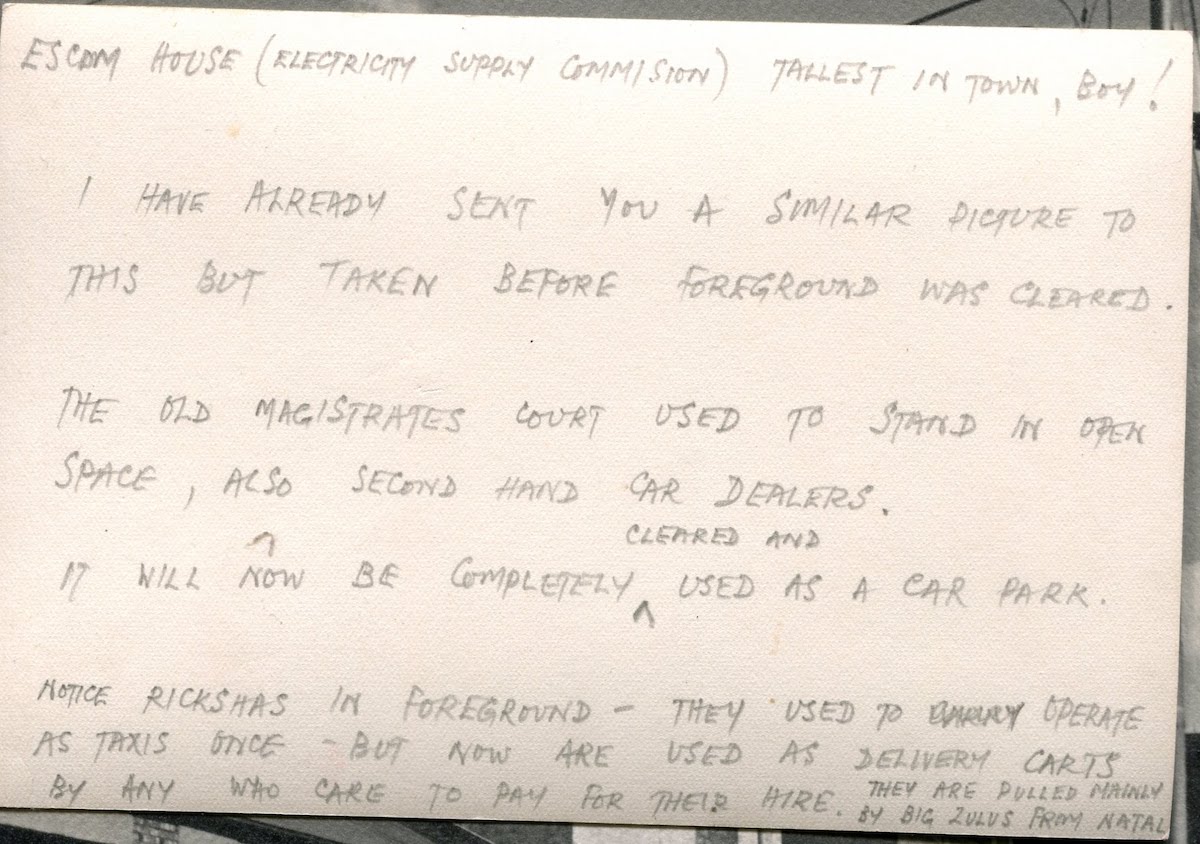 ESCOM HOUSE (ELECTRICITY SUPPLY COMMISION) TALLEST IN TOWN, BOY!
I HAVE ALREADY SENT YOU A SIMILAR PICTURE TO
THIS BUT TAKEN BEFORE FOREGROUND WAS CLEARED.
THE OLD MAGISTRATES COURT USED TO STAND IN OPEN
SPACE, ALSO SECOND HAND CAR DEALERS.
CLEARED AND
IT WILL NOW BE COMPLETELY ^ USED AS A CAR PARK.
NOTICE RICKSHAS IN FOREGROUND - THEY USED TO OPERATE
AS TAXIS ONCE - BUT NOW ARE USED AS DELIVERY CARTS
BY ANY WHO CARE TO PAY FOR THEIR HIRE. THEY ARE PULLED MAINLY
BY BIG ZULUS FROM NATAL